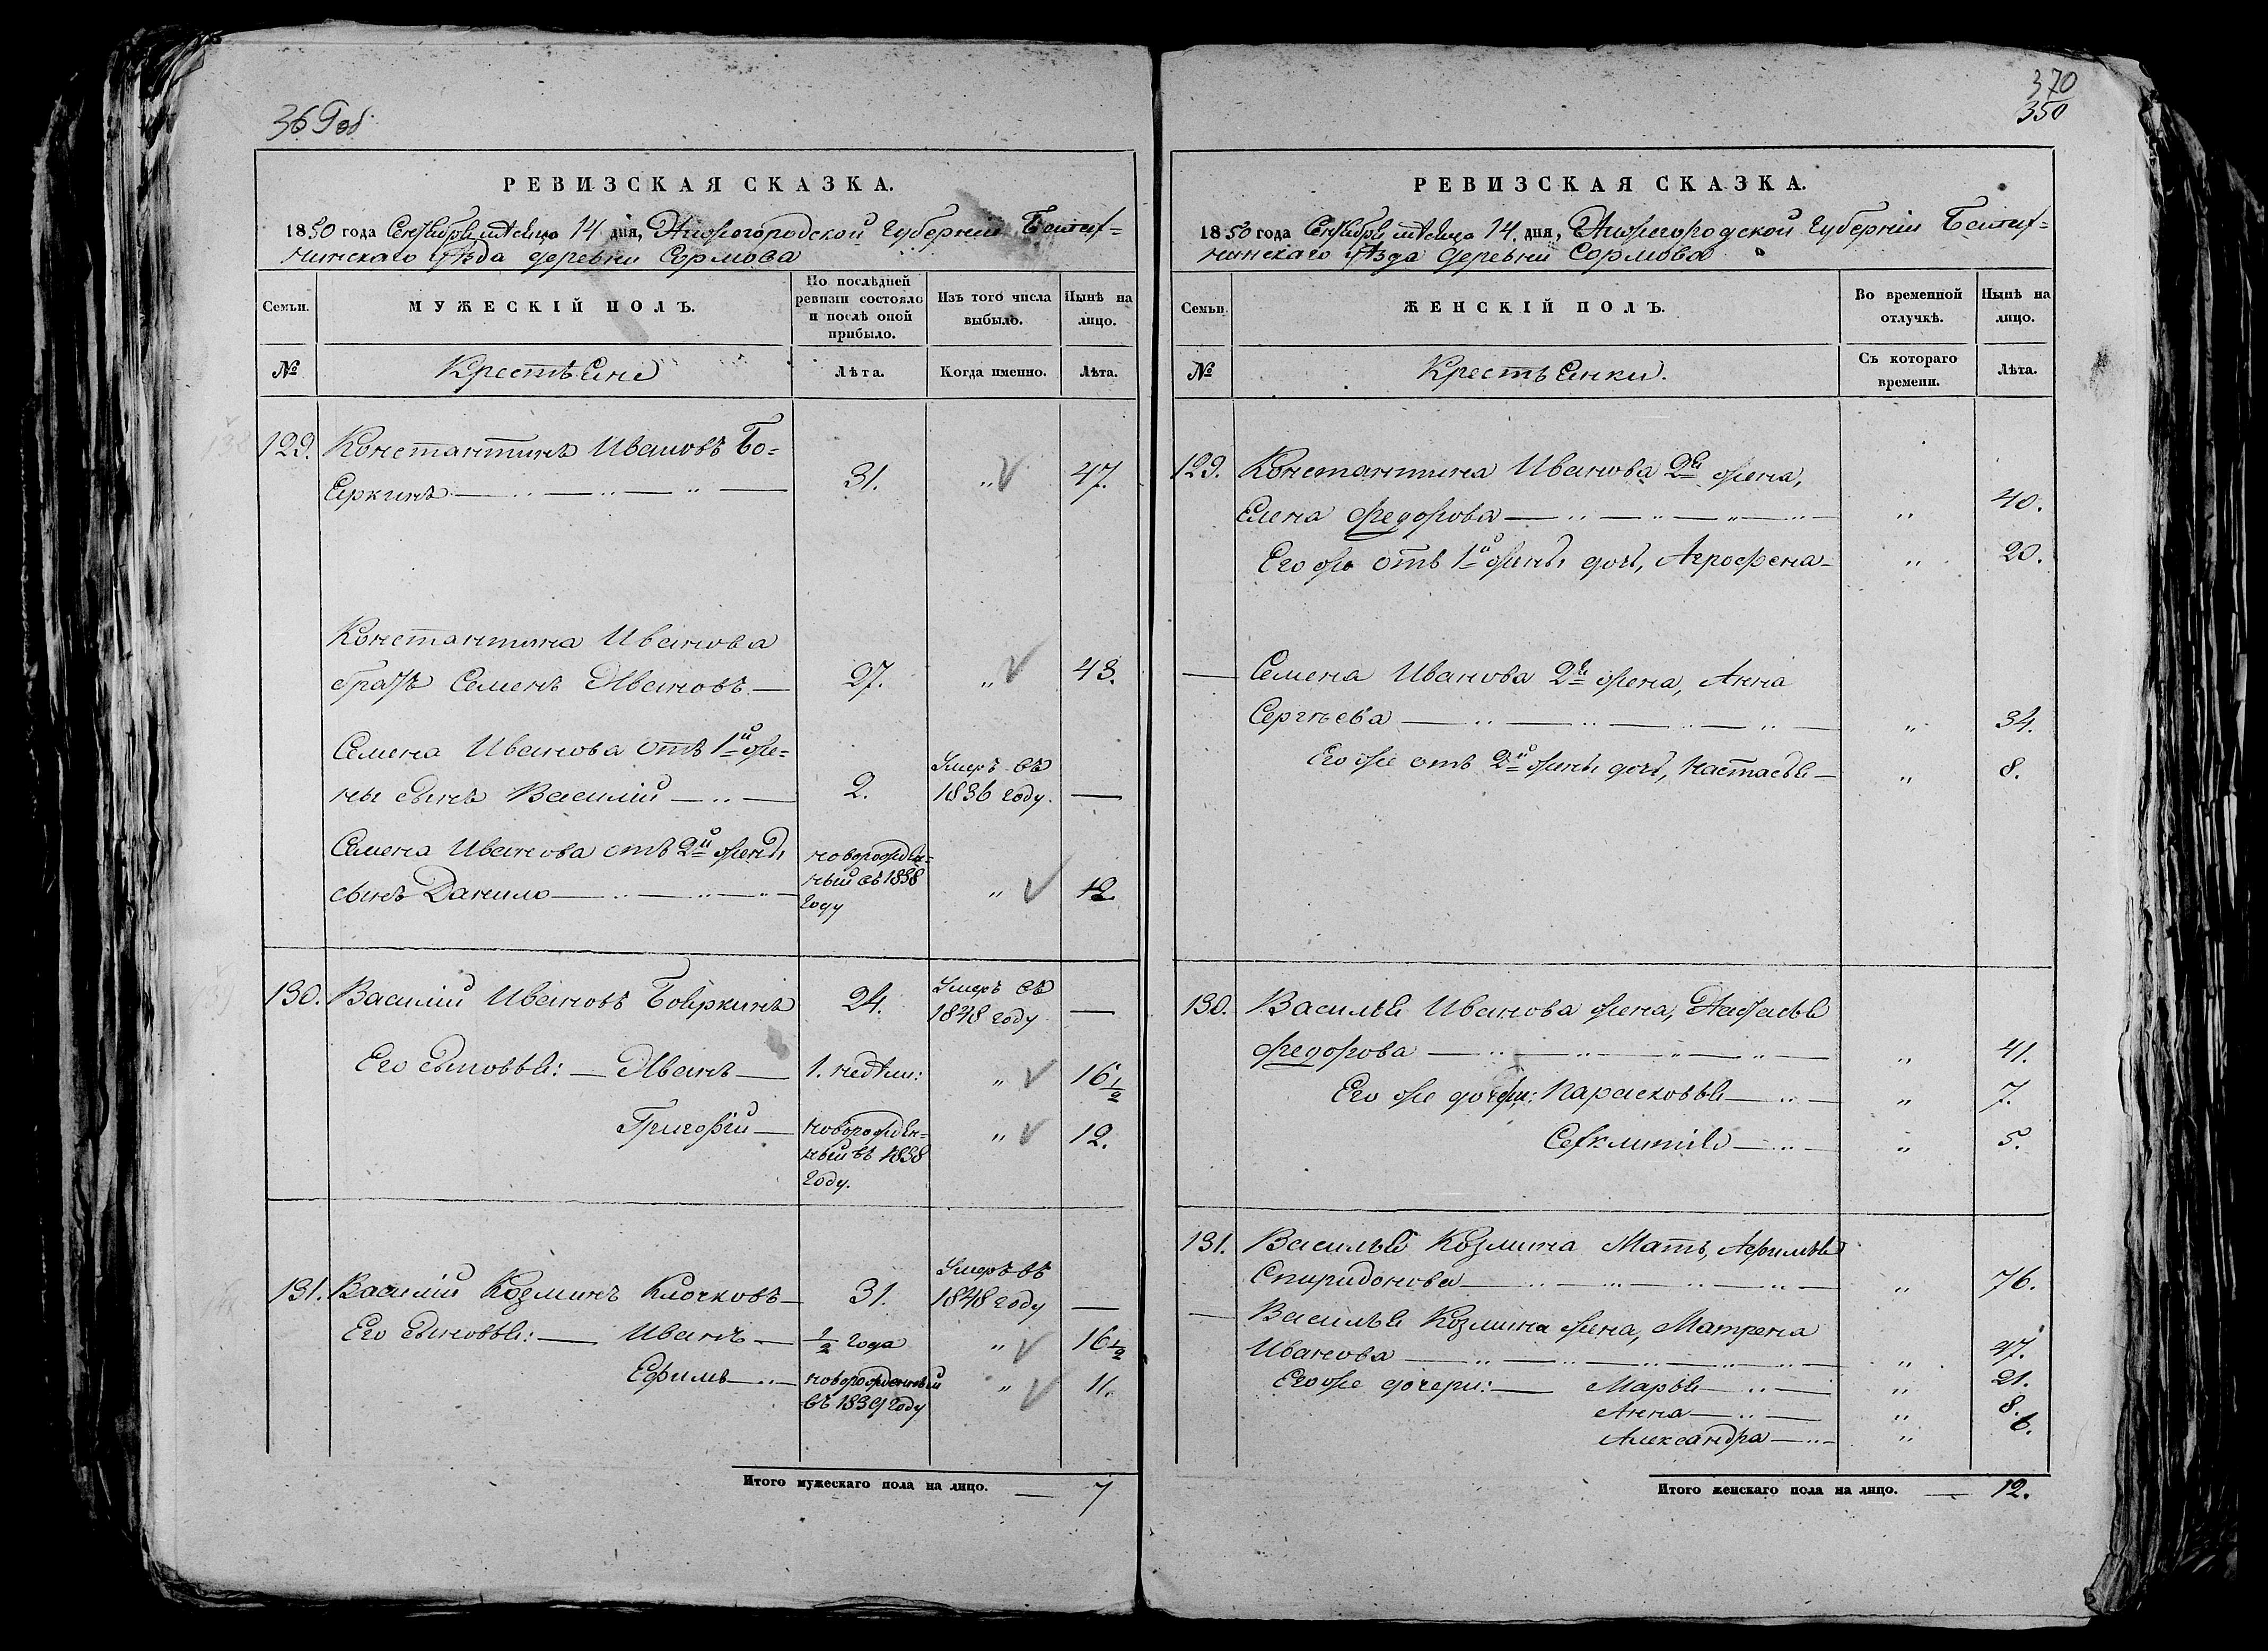 36 Р об
РЕВИЗСКАЯ СКАЗКА.
1850 года Сентября мѣсяца 14 дня, Нижегородской Губерніи Балах-
нинскаго Уѣзда деревни Сормова
Семьи.
МУЖЕСКІЙ ПОЛЪ.
По послѣдней
ревизіи состояло
и послѣ оной
прибыло.
Изъ того числа
выбыло.
Нынѣ на
лицо.
№
Крестьяне
Лѣта.
Когда именно.
Лѣта.
129. Константинъ Ивановъ Бо-
яркинъ 31. " 47.
Константина Иванова
братъ Семенъ Ивановъ 27. " 43.
Семена Иванова отъ 1й же-
ны сынъ Василій 2. Умеръ въ
1836 году. —
Семена Иванова отъ 2й жены
сынъ Данило новорожден-
ный въ 1838
году " 12.
130. Василій Ивановъ Бояркинъ 24. Умеръ въ
1848 году —
Его сыновья: Иванъ 1. недѣли: " 16 1/2
Григорій новорожден-
ный въ 1838
году. " 12.
131. Василій Козминъ Клочковъ 31. Умеръ въ
1848 году —
Его сыновья: Иванъ 1/2 года " 16 1/2
Ефимъ новорожденный
въ 1839 году " 11.
Итого мужескаго пола на лицо. — 7
370
350
РЕВИЗСКАЯ СКАЗКА.
1850 года Сентября мѣсяца 14 дня, Нижегородской Губерніи Балах-
нинскаго Уѣзда деревни Сормова
Семьи
ЖЕНСКІЙ ПОЛЪ.
Во временной
отлучкѣ.
Нынѣ на
лицо.
№
Крестьянки.
Съ котораго
времени.
Лѣта.
129. Константина Иванова 2я жена,
Елена Федорова " 40.
Его же отъ 1й жены дочь, Аграфена " 20.
— Семена Иванова 2я жена, Анна
Сергѣева " 34.
Его же отъ 2й жены дочь, Настасья " 8.
130. Василья Иванова жена, Наталья
Федорова " 41.
Его же дочери: Парасковья " 7.
Секлитія " 5.
131. Василья Козмина Мать, Афимья
Спиридонова " 76.
— Василья Козмина жена, Матрена
Иванова " 47.
Его же дочери: Марья " 21.
Анна " 8.
Александра " 6.
Итого женскаго пола на лицо. — 12.